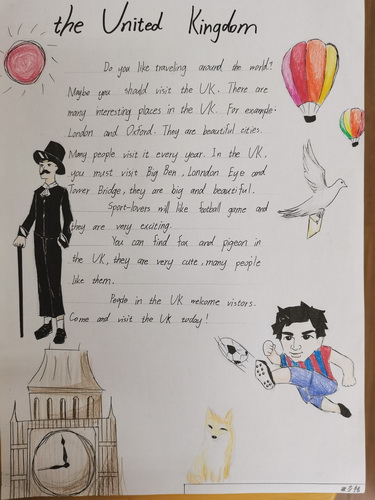 the United Kingdom
Do you like traveling around the world?
Maybe you should visit the UK. There are
many interesting places in the UK. For example:
London and Oxford. They are beautiful cities.
Many people visit it every year. In the UK,
you must visit Big Ben, Lonndon Eye and
Tower Bridge, they are big and beautiful.
Sport-lovers will like football game and
they are very exciting.
You can find fox and pigeon in
the UK, they are very cute, many people
like them.
People in the UK welcome vistors.
Come and visit the UK today!